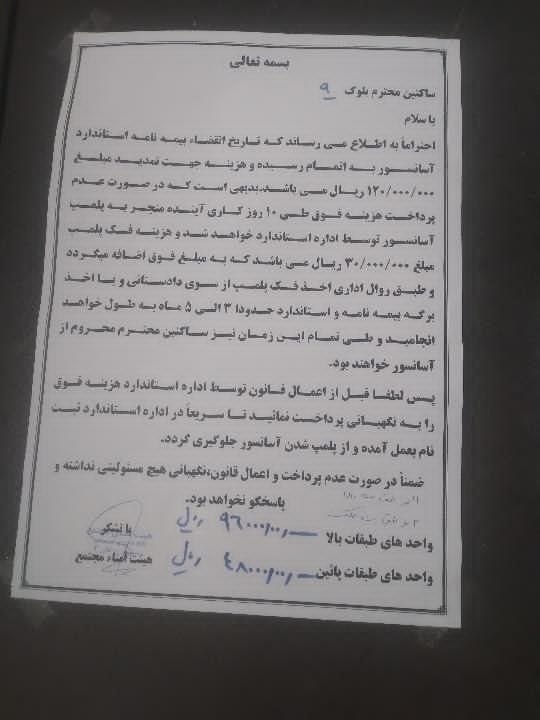 بسمه تعالی
ساکنین محترم بلوک ۹
با سلام
احتراماً به اطلاع می رساند که تاریخ انقضاء بیمه نامه استاندارد
آسانسور به اتمام رسیده و هزینه جهت تمدید مبلغ
۱۲۰/۰۰۰/۰۰۰ ریال می باشد.بدیهی است که در صورت عدم
پرداخت هزینه فوق طی ۱۰ روز کاری آینده منجر به پلمپ
آسانسور توسط اداره استاندارد خواهد شد و هزینه فک پلمپ
مبلغ ۳۰/۰۰۰/۰۰۰ ریال می باشد که به مبلغ فوق اضافه میگردد
و طبق روال اداری اخذ فک پلمپ از سوی دادستانی و یا اخذ
برگه بیمه نامه و استاندارد حدودا ۳ الی ۵ ماه به طول خواهد
انجامید و طی تمام این زمان نیز ساکنین محترم محروم از
آسانسور خواهند بود.
پس لطفا قبل از اعمال قانون توسط اداره استاندارد هزینه فوق
را به نگهبانی پرداخت نمائید تا سریعاً در اداره استاندارد ثبت
نام بعمل آمده و از پلمپ شدن آسانسور جلوگیری گردد.
ضمناً در صورت عدم پرداخت و اعمال قانون،نگهبانی هیچ مسئولیتی نداشته و
پاسخگو نخواهد بود.
واحد های طبقات بالا ۹۶۰۰۰/۰۰ ریال
واحد های طبقات پائین ۴۸۰۰۰/۰۰ ریال
با تشکر
هیئت امناء مجتمع